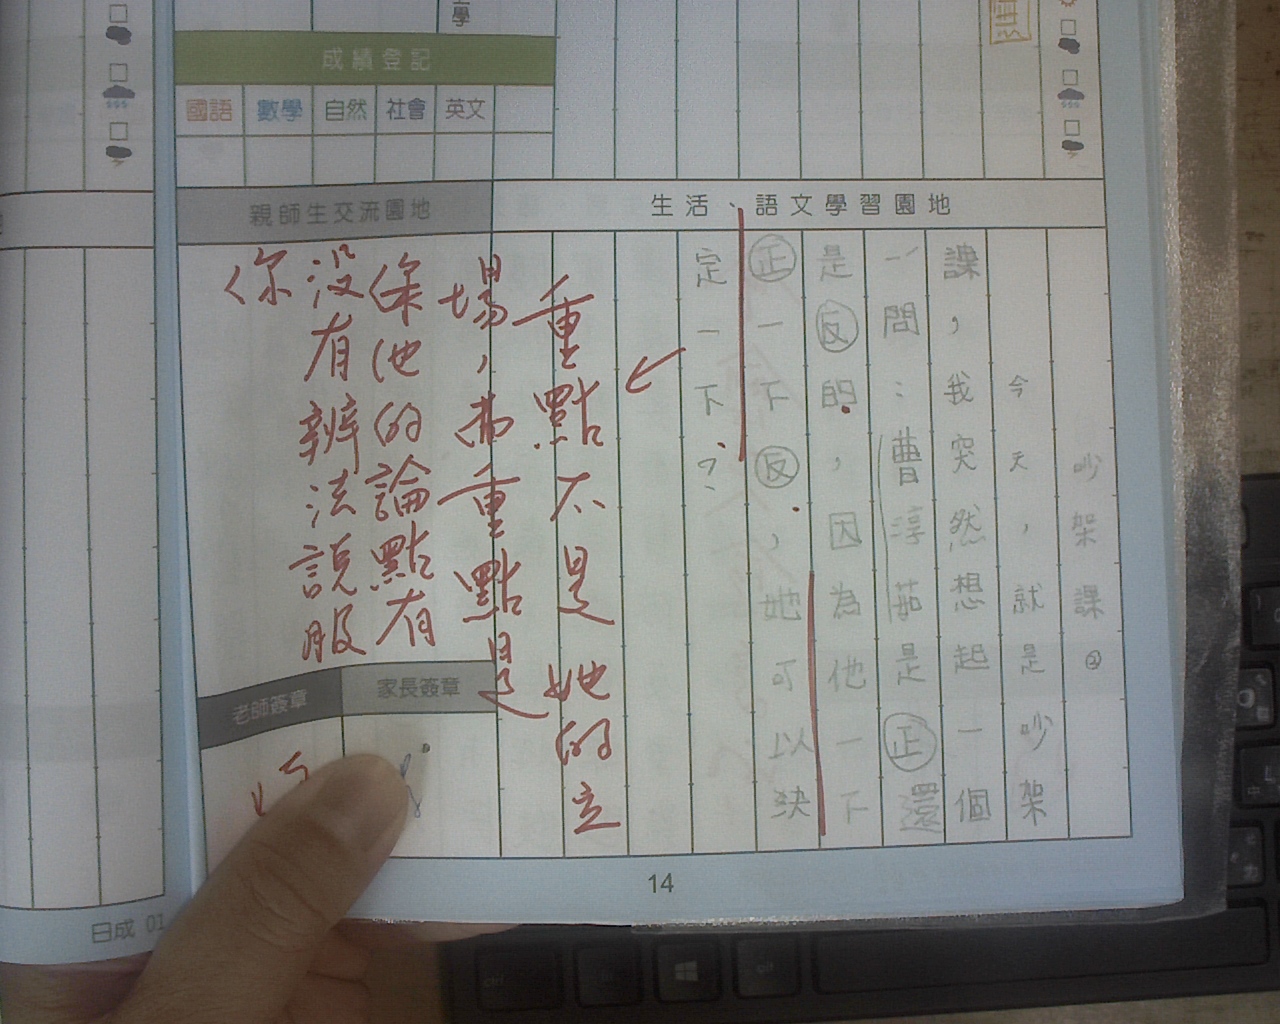 學
成績登記
國語 數學 自然 社會 英文
生活、語文學習園地
吵架課②
今天,就是吵架
課,我突然想起一個
問:曹淳茹是正還
是反的,因為他一下
正一下反,她可以決
定一下?
親師生交流園地
重點不是她的立
場,而重點是
他的論點有
沒有辦法說服
你
家長簽章
老師簽章
14
日成 01